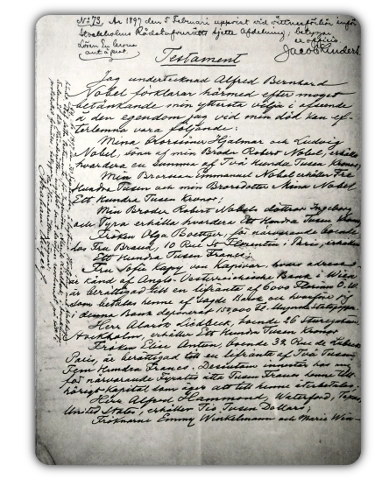 No 73. År 1897 den 5 Februari uppvist vid vittnesförhör inför
Stockholms Rådstufvurätts sjette Afdelning; betygar
Jacob
Testament
Jag undertecknad Alfred Bernhard
Nobel förklarar härmed efter moget
betänkande min yttersta vilja i afseende
å den egendom jag vid min död kan ef-
terlemna vara följande:
Mina Brorsöner Hjalmar och Ludvig
Nobel, söner af min Broder Robert Nobel, erhålla
hvardera en summa af Två Hundra Tusen Kronor;
Min Brorson Emmanuel Nobel erhåller Tre
Hundra Tusen och min Brorsdotter Mina Nobel
Ett Hundra Tusen Kronor;
Min Broder Robert Nobels döttrar Ingeborg
och Tyra erhålla hvardera Ett Hundra Tusen Kronor
Fröken Olga Boettger, för närvarande boende
hos Fru Brand, 10 Rue St Florentin i Paris, erhåller
Ett Hundra Tusen Francs;
Fru Sofie Kapy von Kapivar, hvars adress
är känd af Anglo-Oesterreichische Bank i Wien
är berättigad till en lifränta af 6000 Florins Ö.W.
som betalas henne af sagde Bank och hvarför jag
i denna bank deponerat 150,000 Fl. i Ungerska Statspapper
Herr Alarik Liedbeck, boende 26 Sturegatan
Stockholm, erhåller Ett Hundra Tusen Kronor
Fröken Elise Antun, boende 32 Rue de Lubeck
Paris, är berättigad till en lifränta af Två Tusen
Fem Hundra Francs; Dessutom innestår hos mig
för närvarande Fyratio åtta Tusen Francs henne till-
hörigt Kapital som äger att till henne återbetalas;
Herr Alfred Hammond, Waterford, Texas,
United States, erhåller Tio Tusen Dollars;
Fröknarne Emmy Winkelmann och Marie Win-